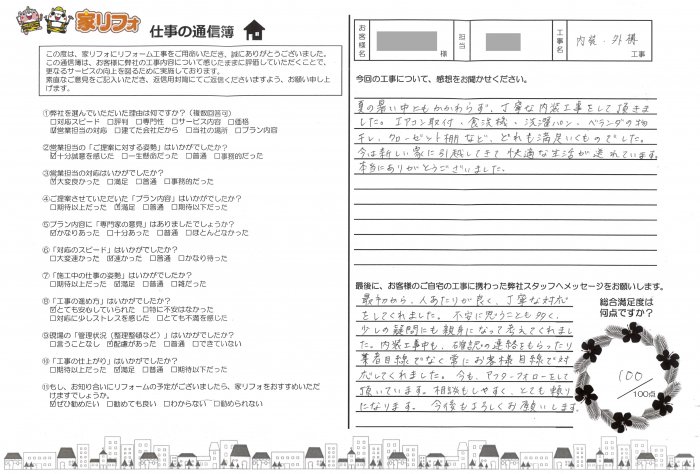 家リフォ 仕事の通信簿
この度は、家リフォにリフォーム工事をご用命いただき、誠にありがとうございました。
この通信簿は、お客様に弊社の工事内容について感じたままに評価していただくことで、
更なるサービスの向上を図るために実施しております。
素直なご意見をご記入いただき、返信用封筒にてご返信くださいますよう、お願い申し上
げます。
①弊社を選んでいただいた理由は何ですか？（複数回答可）
□対応スピード □評判 □専門性 □サービス内容 □価格
☑営業担当の対応 □建てた会社だから □当社の場所 □プラン内容
②営業担当の「ご提案に対する姿勢」はいかがでしたか？
☑十分誠意を感じた □一生懸命だった □普通 □事務的だった
③営業担当の対応はいかがでしたか？
☑大変良かった □満足 □普通 □事務的だった
④ご提案させていただいた「プラン内容」はいかがでしたか？
□期待以上だった ☑満足 □普通 □期待以下だった
⑤プラン内容に「専門家の意見」はありましたでしょうか？
☑かなりあった □十分あった □普通 □ほとんどなかった
⑥「対応のスピード」はいかがでしたか？
□大変速かった ☑速かった □普通 □かなり待った
⑦「施工中の仕事の姿勢」はいかがでしたか？
□期待以上だった ☑満足 □普通 □雑だった
⑧「工事の進め方」はいかがでしたか？
☑とても安心していられた □特に不安はなかった
□対応に少しストレスを感じた □とても不満を感じた
⑨現場の「管理状況（整理整頓など）」はいかがでしたか？
□言うことなし ☑配慮があった □普通 □できていない
⑩「工事の仕上がり」はいかがでしたか？
□期待以上だった ☑満足 □普通 □期待以下だった
⑪もし、お知り合いにリフォームの予定がございましたら、家リフォをおすすめいただ
けますでしょうか。
☑ぜひ勧めたい □勧めても良い □わからない □勧められない
お客様名 様 担当 工事名 内装・外構 工事
今回の工事について、感想をお聞かせください。
夏の暑い中にもかかわらず、丁寧な内装工事をして頂きま
した。エアコン取付・食洗機・洗濯パン・ベランダの物
干し、クローゼット棚など、どれも満足いくものでした。
今は新しい家に引越してきて快適な生活が送れています。
本当にありがとうございました。
最後に、お客様のご自宅の工事に携わった弊社スタッフへメッセージをお願いします。
最初から、人あたりが良く、丁寧な対応
をしてくれました。不安に思うことも多く、
少しの疑問にも親身になって考えてくれまし
た。内装工事中も、確認の連絡をもらったり
業者目線でなく常にお客様目線で対
応してくれました。今も、アフターフォローをして
頂いています。相談もしやすく、とても頼り
になります。今後もよろしくお願いします。
総合満足度は
何点ですか？
100
／100点